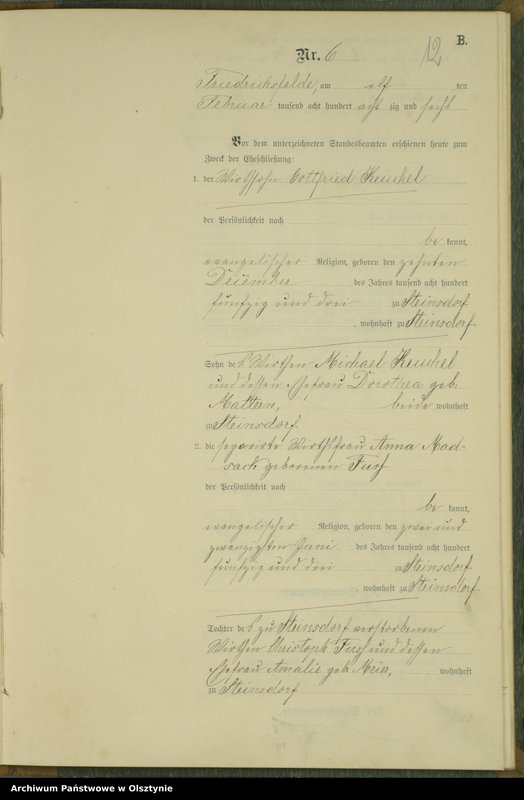 B.
12
Nr. 6
Friedrichsfelde, am elf ten
Februar tausend acht hundert acht zig und sechs
Vor dem unterzeichneten Standesbeamten erschienen heute zum
Zweck der Eheschließung:
1. der Wirthssohn Gottfried Keuchel
der Persönlichkeit nach
be kannt,
evangelischer Religion, geboren den zehnten
December des Jahres tausend acht hundert
fünfzig und drei zu Steinsdorf
, wohnhaft zu Steinsdorf
Sohn des Wirthen Michael Keuchel
und dessen Ehefrau Dorothea geb.
Mattern, beide wohnhaft
zu Steinsdorf
2. die separirte Wirthsfrau Anna Mad-
sack geborenen
der Persönlichkeit nach
be kannt,
evangelischer Religion, geboren den zwei und
zwanzigten Juni des Jahres tausend acht hundert
fünfzig und drei zu Steinsdorf
, wohnhaft zu Steinsdorf
Tochter des zu Steinsdorf verstorbenen
Wirthen Christoph und dessen
Ehefrau Amalie geb. wohnhaft
zu Steinsdorf
Archiwum Państwowe w Olsztynie